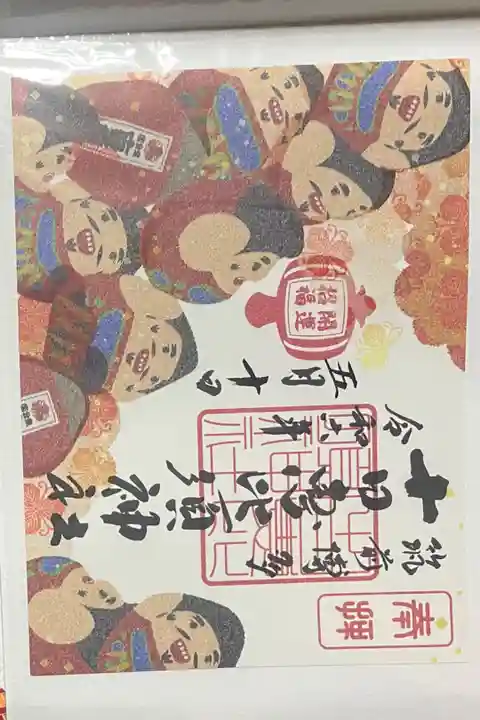 奉拝
筑前博多
十日恵比須神社
令和六年
五月十日
開運
招福